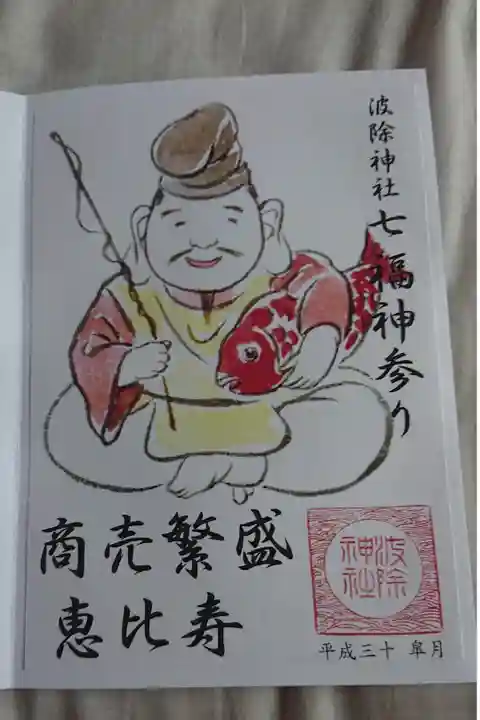 波除神社七福神参り
商売繁盛
恵比寿
波除
神社
平成三十 皐月